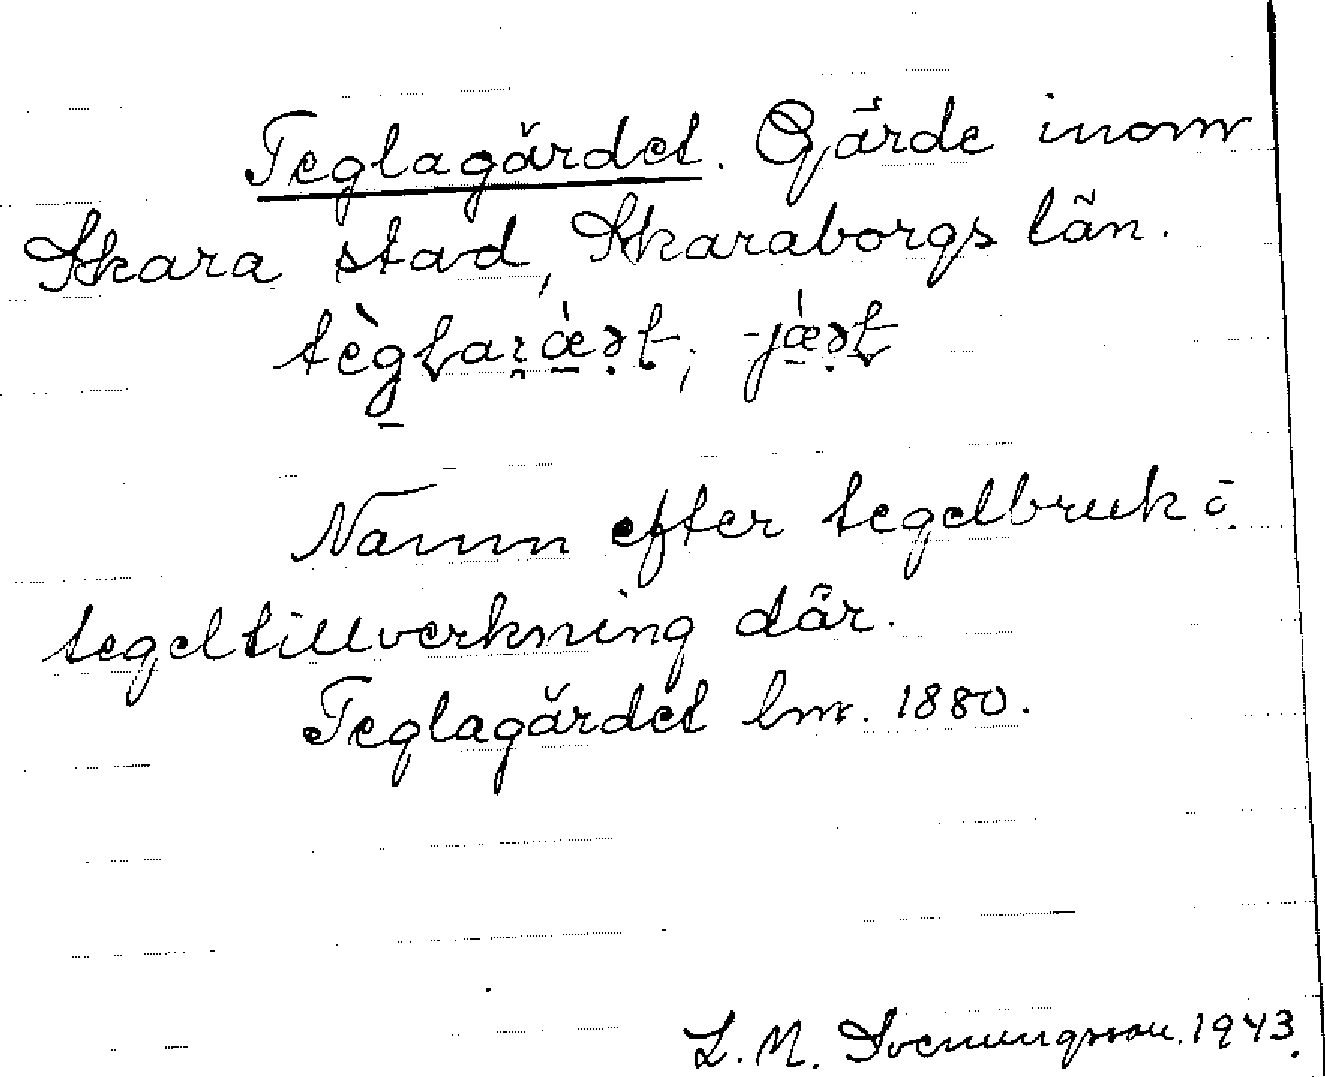 Teglagärdet. Gärde inom
Skara stad, Skaraborgs län.
Namn efter tegelbruk o.
tegeltillverkning där.
Teglagärdet lm. 1880.
L. M. Svenungsson. 1943.